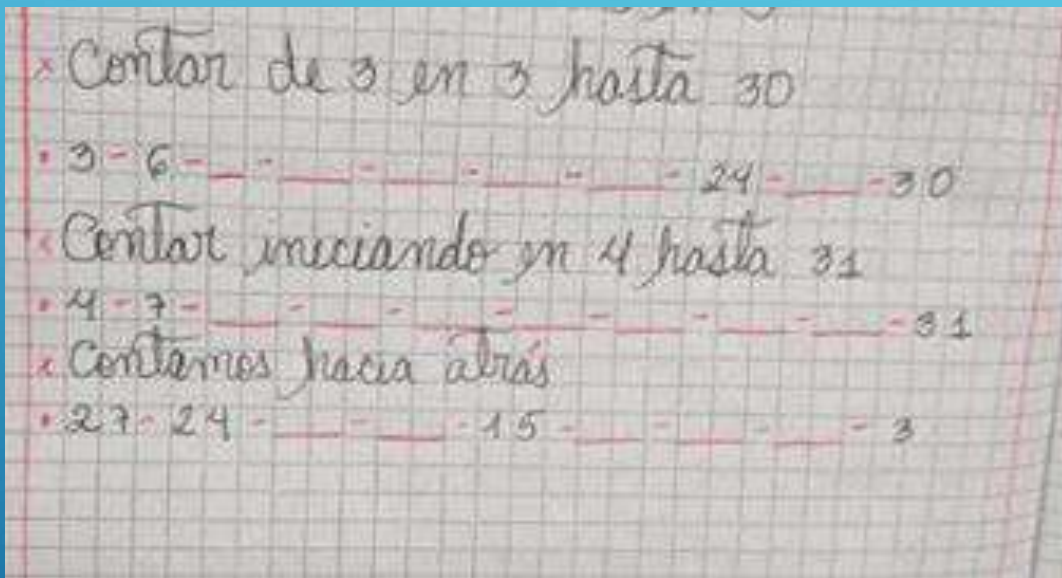 x Contar de 3 en 3 hasta 30
• 3 - 6 - __ - ___ - ___ - ___ - ___ - 24 - ___ - 30
x Contar iniciando en 4 hasta 31
• 4 - 7 - ___ - ___ - ___ - ___ - ___ - ___ - ___ - 31
x Contamos hacia atrás
• 27 - 24 - ___ - ___ - 15 - ___ - ___ - ___ - 3